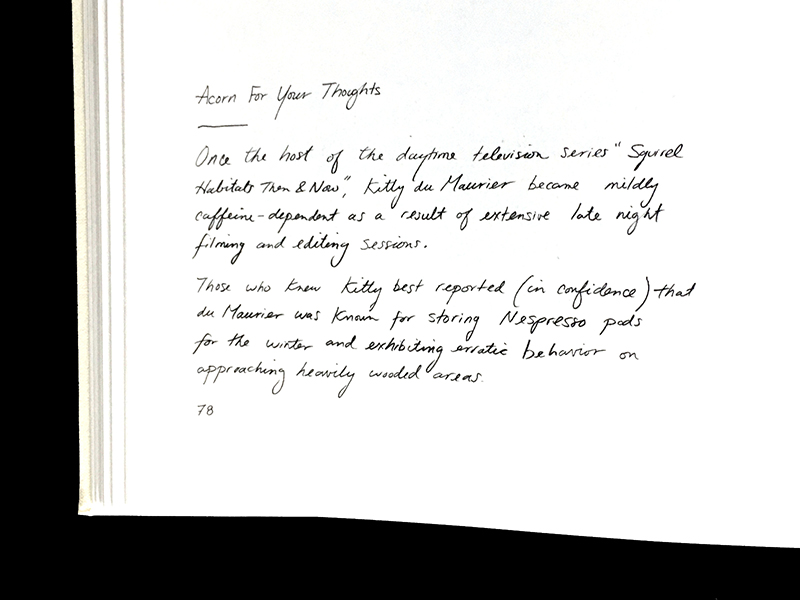 Acorn For Your Thoughts
Once the host of the daytime television series "Squirrel
Habitats Then & Now", Kitty du Maurier became mildly
caffeine-dependent as a result of extensive late night
filming and editing sessions.
Those who knew Kitty best reported (in confidence) that
du Maurier was known for storing Nespresso pods
for the winter and exhibiting erratic behavior on
approaching heavily wooded areas.
78